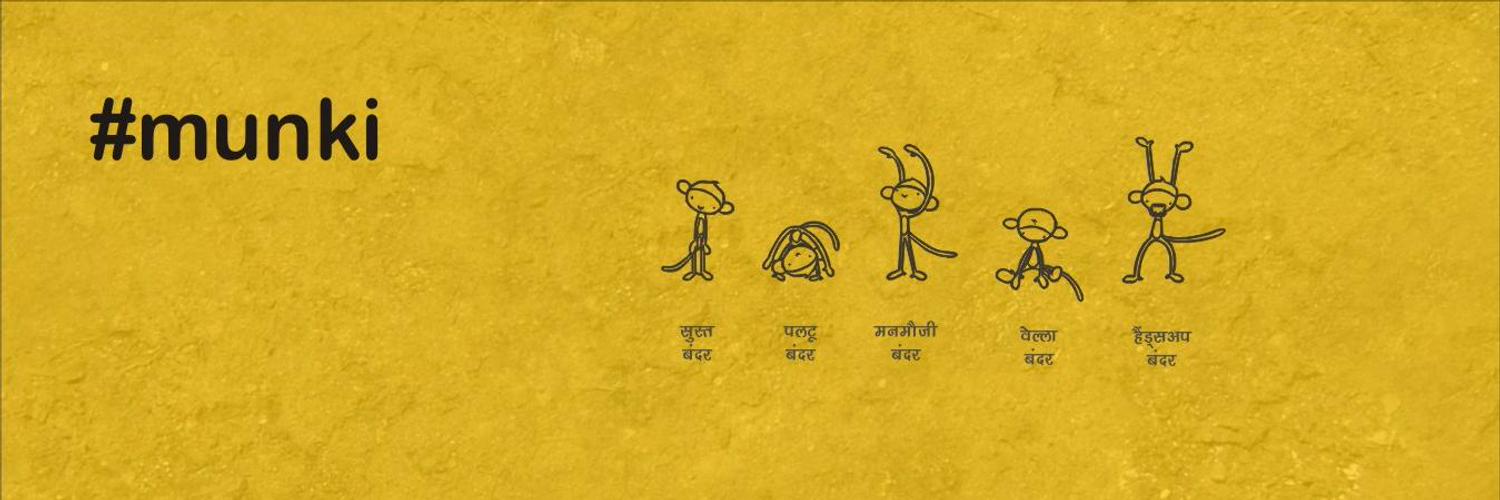 #munki
सुस्त
बंदर
पलटू
बंदर
मनमौजी
बंदर
वेल्ला
बंदर
हैंड्सअप
बंदर